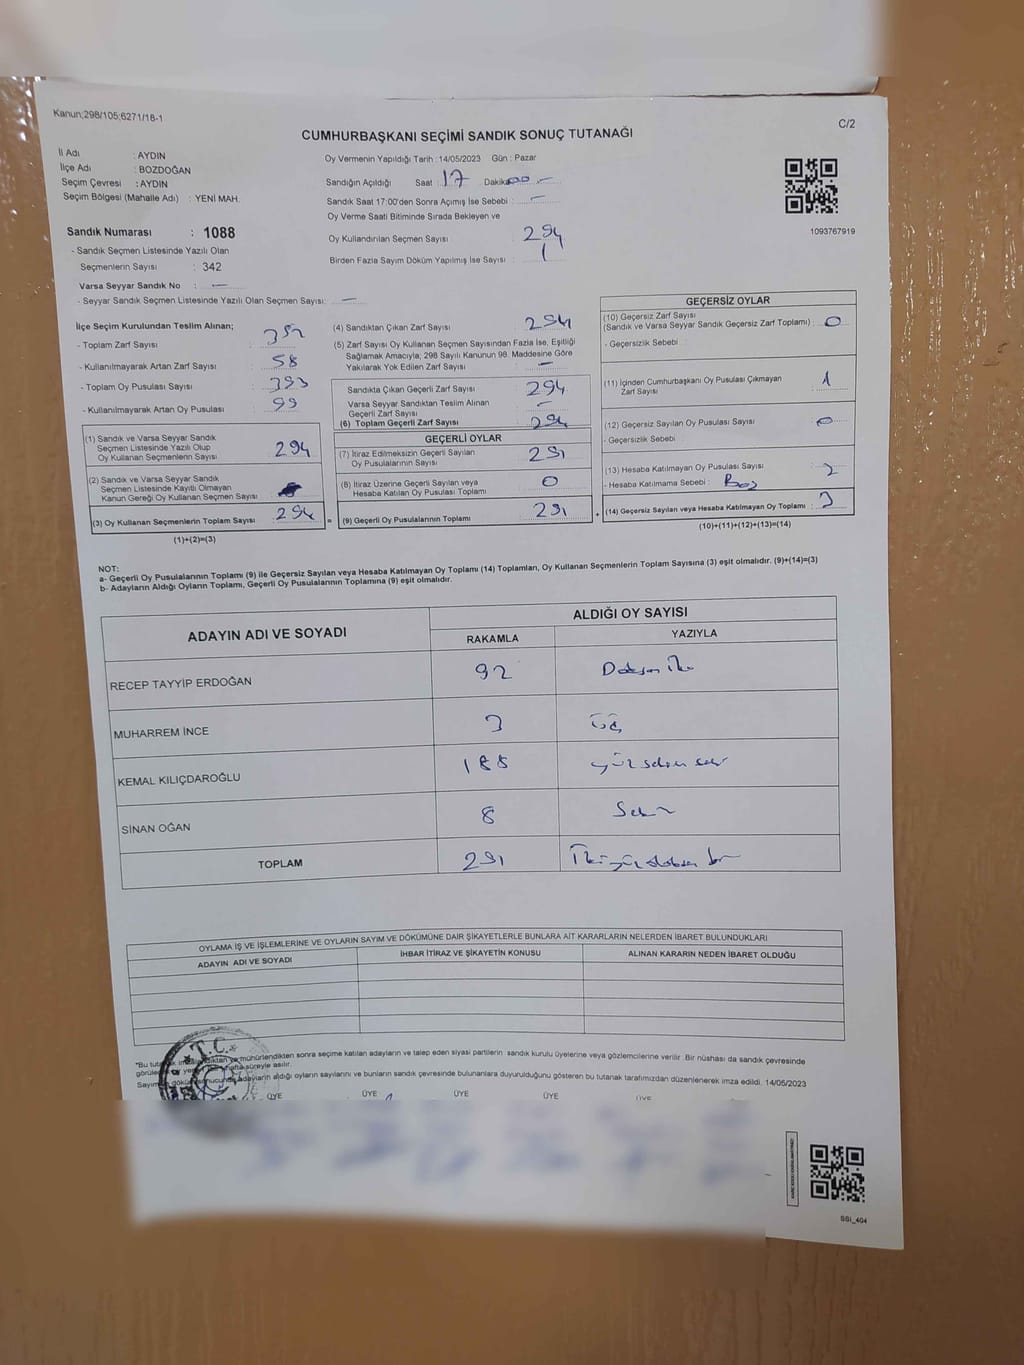 Kanun;298/105;6271/18-1
C/2
CUMHURBAŞKANI SEÇİMİ SANDIK SONUÇ TUTANAĞI
İl Adı : AYDIN
İlçe Adı : BOZDOĞAN
Seçim Çevresi : AYDIN
Seçim Bölgesi (Mahalle Adı) : YENİ MAH.
Sandık Numarası : 1088
- Sandık Seçmen Listesinde Yazılı Olan
Seçmenlerin Sayısı : 342
Varsa Seyyar Sandık No : —
- Seyyar Sandık Seçmen Listesinde Yazılı Olan Seçmen Sayısı: —
Oy Vermenin Yapıldığı Tarih :14/05/2023 Gün : Pazar
Sandığın Açıldığı Saat 17 Dakika 00 —
Sandık Saat 17:00'den Sonra Açımış İse Sebebi : —
Oy Verme Saati Bitiminde Sırada Bekleyen ve
Oy Kullandırılan Seçmen Sayısı : 294
Birden Fazla Sayım Döküm Yapılmış İse Sayısı : 1
1093767919
İlçe Seçim Kurulundan Teslim Alınan;
- Toplam Zarf Sayısı : 352
- Kullanılmayarak Artan Zarf Sayısı : 58
- Toplam Oy Pusulası Sayısı : 393
- Kullanılmayarak Artan Oy Pusulası : 99
(1) Sandık ve Varsa Seyyar Sandık
Seçmen Listesinde Yazılı Olup
Oy Kullanan Seçmenlerin Sayısı : 294
(2) Sandık ve Varsa Seyyar Sandık
Seçmen Listesinde Kayıtlı Olmayan
Kanun Gereği Oy Kullanan Seçmen Sayısı :
(3) Oy Kullanan Seçmenlerin Toplam Sayısı : 294
(1)+(2)=(3)
(4) Sandıktan Çıkan Zarf Sayısı : 294
(5) Zarf Sayısı Oy Kullanan Seçmen Sayısından Fazla İse, Eşitliği
Sağlamak Amacıyla; 298 Sayılı Kanunun 98. Maddesine Göre
Yakılarak Yok Edilen Zarf Sayısı : —
Sandıkta Çıkan Geçerli Zarf Sayısı : 294
Varsa Seyyar Sandıktan Teslim Alınan
Geçerli Zarf Sayısı : —
(6) Toplam Geçerli Zarf Sayısı : 294
GEÇERLİ OYLAR
(7) İtiraz Edilmeksizin Geçerli Sayılan
Oy Pusulalarının Sayısı : 291
(8) İtiraz Üzerine Geçerli Sayılan veya
Hesaba Katılan Oy Pusulası Toplamı : 0
= (9) Geçerli Oy Pusulalarının Toplamı : 291 +
GEÇERSİZ OYLAR
(10) Geçersiz Zarf Sayısı
(Sandık ve Varsa Seyyar Sandık Geçersiz Zarf Toplamı) : 0
- Geçersizlik Sebebi :
(11) İçinden Cumhurbaşkanı Oy Pusulası Çıkmayan
Zarf Sayısı : 1
(12) Geçersiz Sayılan Oy Pusulası Sayısı : 0
- Geçersizlik Sebebi :
(13) Hesaba Katılmayan Oy Pusulası Sayısı : 2
- Hesaba Katılmama Sebebi : Boş
(14) Geçersiz Sayılan veya Hesaba Katılmayan Oy Toplamı : 3
(10)+(11)+(12)+(13)=(14)
NOT:
a- Geçerli Oy Pusulalarının Toplamı (9) ile Geçersiz Sayılan veya Hesaba Katılmayan Oy Toplamı (14) Toplamları, Oy Kullanan Seçmenlerin Toplam Sayısına (3) eşit olmalıdır. (9)+(14)=(3)
b- Adayların Aldığı Oyların Toplamı, Geçerli Oy Pusulalarının Toplamına (9) eşit olmalıdır.
ADAYIN ADI VE SOYADI
ALDIĞI OY SAYISI
RAKAMLA YAZIYLA
RECEP TAYYİP ERDOĞAN 92 Doksan İki
MUHARREM İNCE 3 Üç
KEMAL KILIÇDAROĞLU 188 yüz seksen sekiz
SİNAN OĞAN 8 Sekiz
TOPLAM 291 İkiyüz doksan bir
OYLAMA İŞ VE İŞLEMLERİNE VE OYLARIN SAYIM VE DÖKÜMÜNE DAİR ŞİKAYETLERLE BUNLARA AİT KARARLARIN NELERDEN İBARET BULUNDUKLARI
ADAYIN ADI VE SOYADI İHBAR İTİRAZ VE ŞİKAYETİN KONUSU ALINAN KARARIN NEDEN İBARET OLDUĞU
T.C.
*Bu ve mühürlendikten sonra seçime katılan adayların ve talep eden siyasi partilerin sandık kurulu üyelerine veya gözlemcilerine verilir. Bir nüshası da sandık çevresinde
hafta süreyle asılır.
Sayım adayların aldığı oyların sayılarını ve bunların sandık çevresinde bulunanlara duyurulduğunu gösteren bu tutanak tarafımızdan düzenlenerek imza edildi. 14/05/2023
ÜYE ÜYE ÜYE ÜYE ÜYE
SSI_404